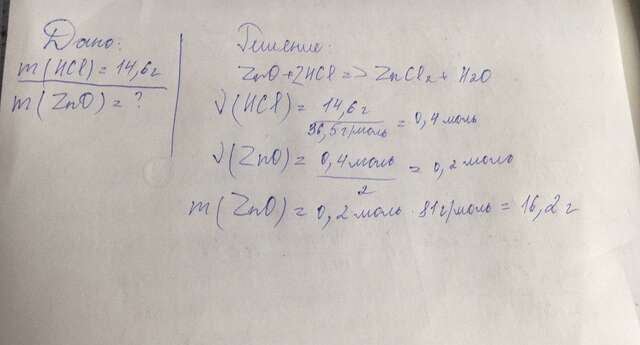 Дано:
m(HCl) = 14,6 г
m(ZnO) = ?
Решение:
ZnO + 2HCl => ZnCl₂ + H₂O
ν(HCl) = 14,6 г / 36,5 г/моль = 0,4 моль
ν(ZnO) = 0,4 моль / 2 = 0,2 моль
m(ZnO) = 0,2 моль · 81 г/моль = 16,2 г